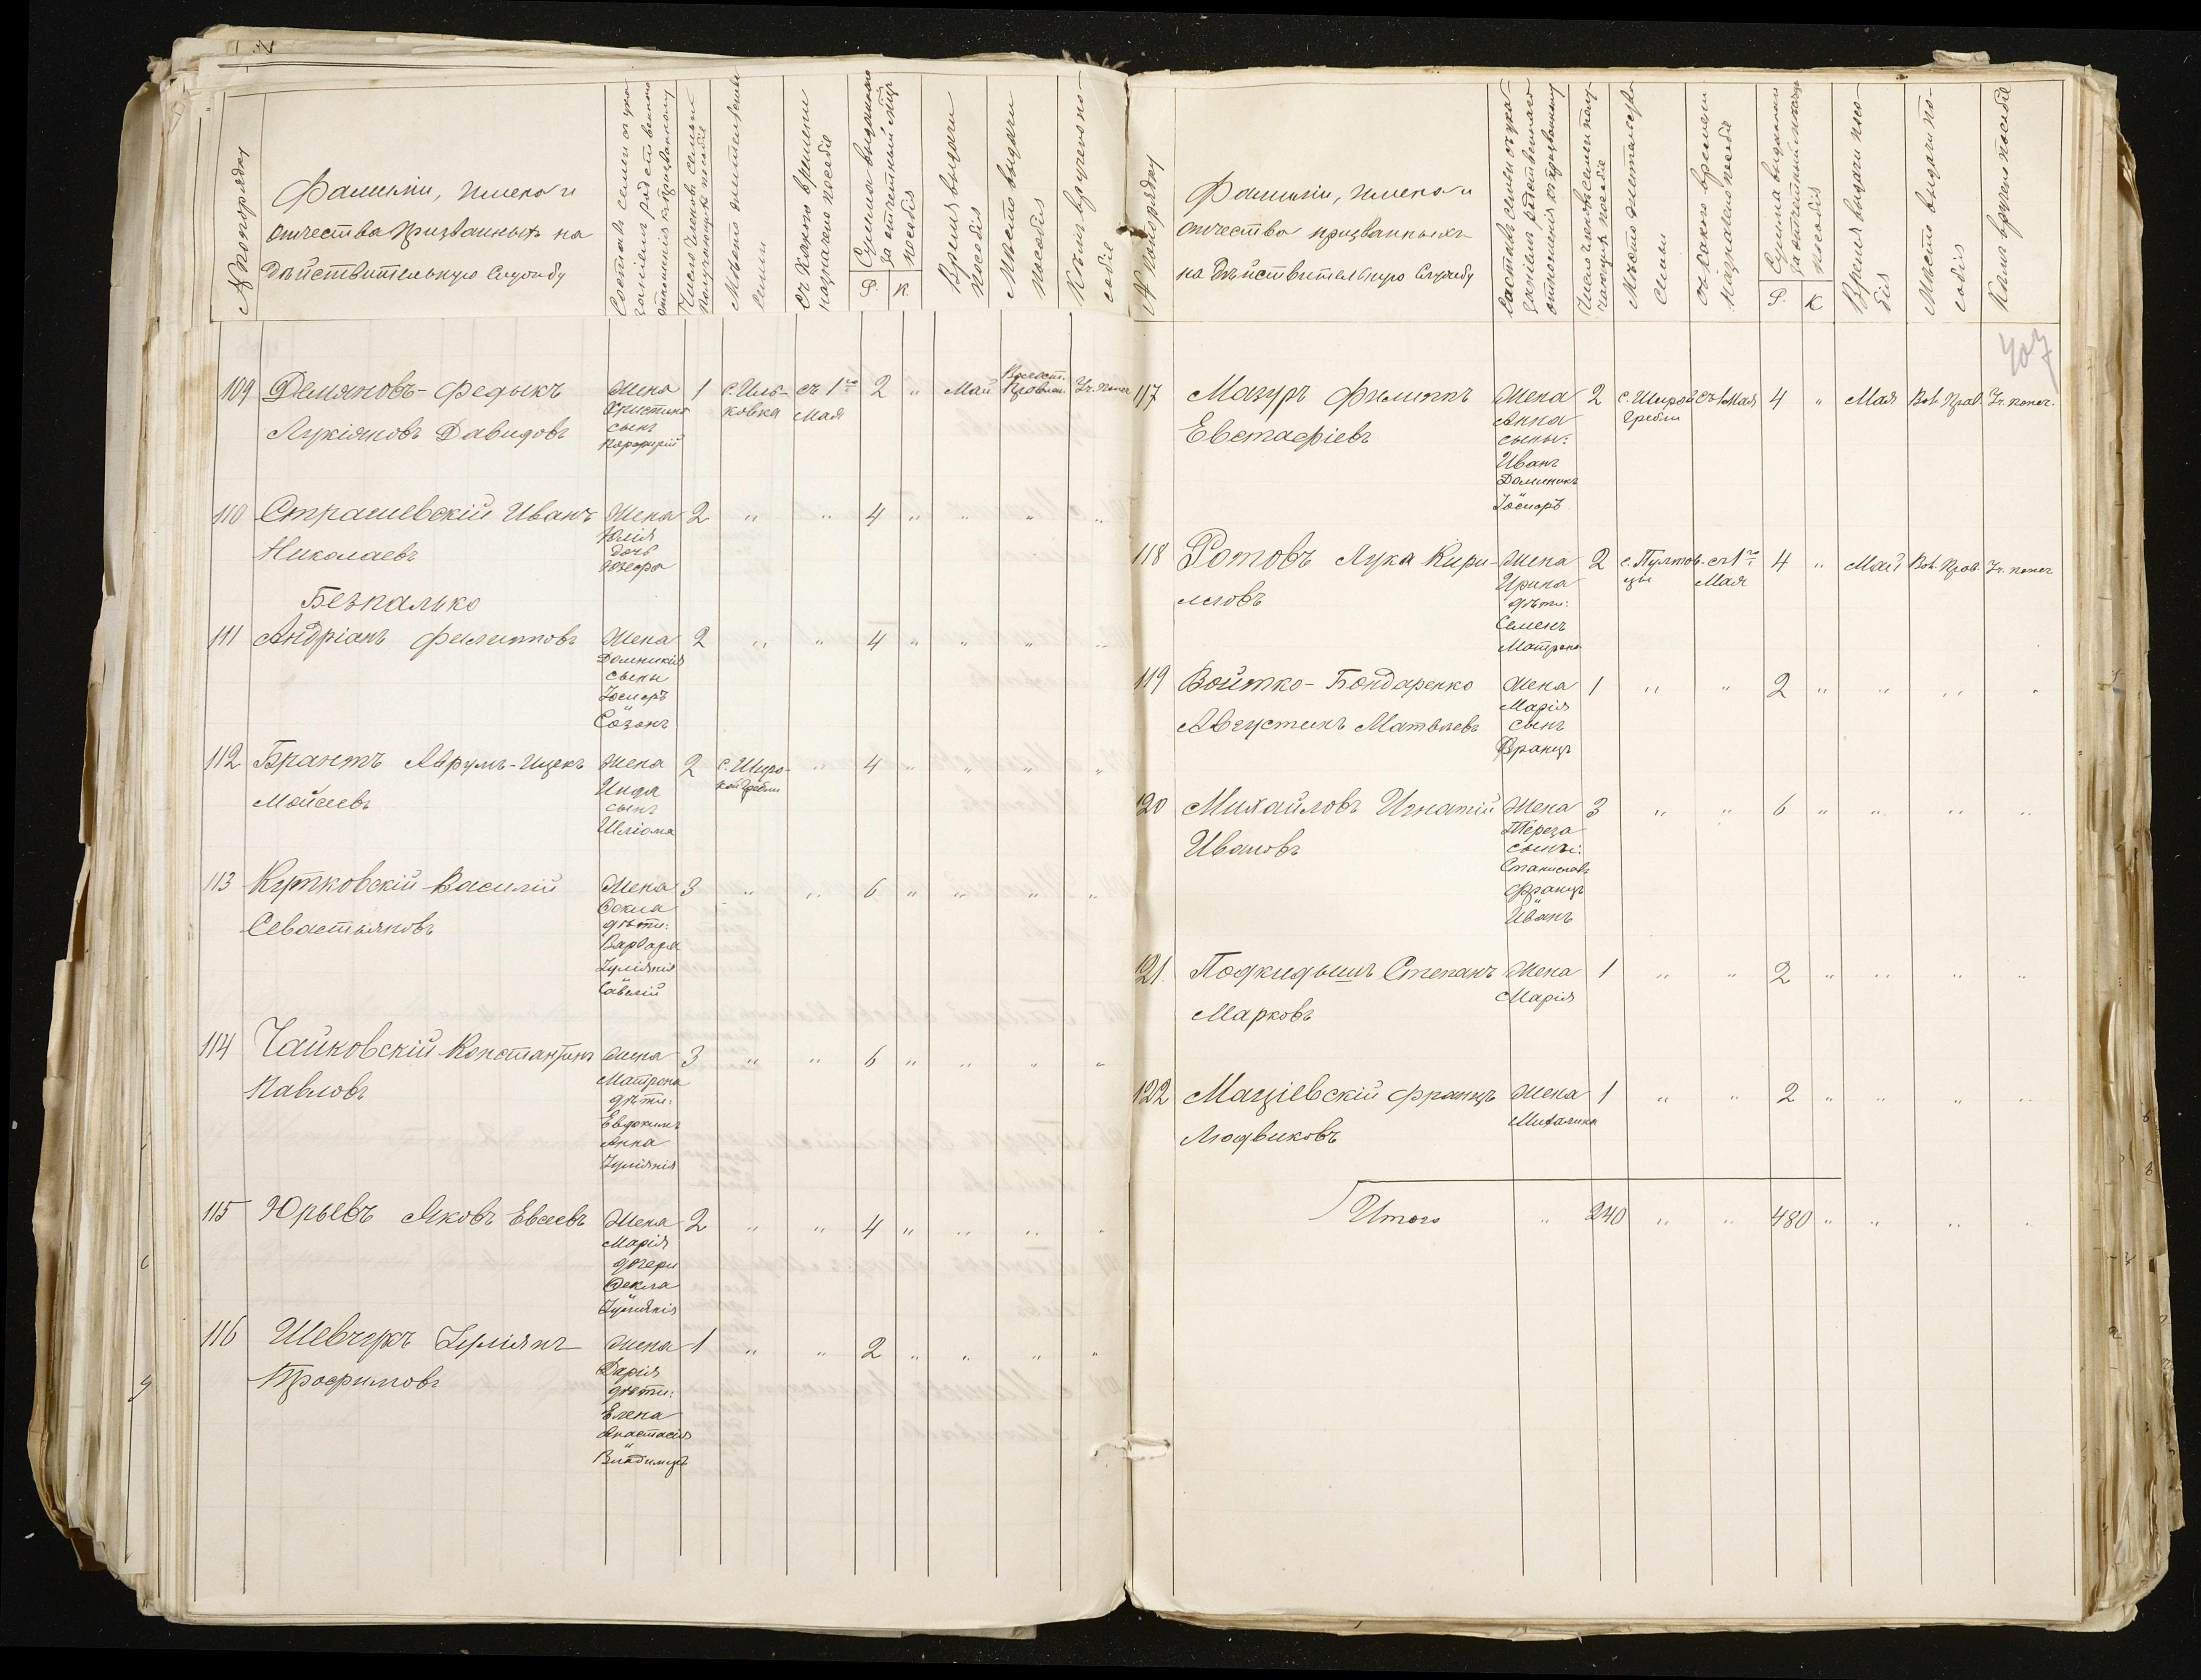 № по порядку
Фамиліи, имена и
отчества призванныхъ на
дѣйствительную службу
Составъ семьи съ ука-
заніемъ родственнаго
отношенія къ призванному
Число членовъ семьи
получающихъ пособіе
Мѣсто жительства
семьи
Съ какого времени
назначено пособіе
Сумма выданнаго
за отчетный мѣр
пособія
Р. К.
Время выдачи
пособія
Мѣсто выдачи
пособія
Кѣмъ вручено по-
собіе
109 Демяновъ-Федыкъ Жена 1 с. Иль- съ 1го 2 " Май Волост. Правлен. Уч. попеч
Лукіановъ Давидовъ Христина ковка Мая
сынъ
Порфирій
110 Страшевскій Иванъ Жена 2 " " 4 " " " "
Николаевъ Юлія
дочь
Юзефа
Безпалько
111 Андріанъ Филипповъ Жена 2 " " 4 " " " "
Домникія
сыны
Іосифъ
и
Созонъ
112 Брантъ Аврумъ-Ицекъ Жена 2 с. Широ- " 4 " " " "
Мойсеевъ Инда кой Гребли
сынъ
Шліома
113 Кутковскій Василій Жена 3 " " 6 " " " "
Севастьяновъ Фекла
дѣти:
Варвара
Іуліанія
и
Савелій
114 Чайковскій Константинъ Жена 3 " " 6 " " " "
Павловъ Матрона
дѣти:
Евдокимъ
Анна
Іуліанія
115 Юрьевъ Яковъ Евсеевъ Жена 2 " " 4 " " " "
Марія
дочери
Фекла
и
Іуліанія
116 Шевчукъ Іуліянъ Жена 1 " " 2 " " " "
Трофимовъ Дарія
дѣти:
Елена
Анастасія
и
Владимиръ
№ по порядку
Фамиліи, имена и
отчества призванныхъ
на дѣйствительную службу
Составъ семьи съ ука-
заніемъ родственнаго
отношенія къ призванному
Число членовъ семьи полу-
чающихъ пособіе
Мѣсто жительства
семьи
Съ какого времени
назначено пособіе
Сумма выданнаго
за отчетный
пособія
Р. К
Время выдачи посо-
бія
Мѣсто выдачи по-
собія
Кѣмъ вручено пособіе
407
117 Мазуръ Филиппъ Жена 2 с. Широкой съ 1 Мая 4 " Мая Вол. Прав. Уч. попеч.
Евстафіевъ Анна Гребли
сыны:
Иванъ
Доминикъ
и
Іосифъ
118 Ротовъ Лука Кири- Жена 2 с. Пултов- съ 1го 4 " Май Вол. Прав. Уч. попеч
лловъ Ирина цы Мая
дѣти:
Семенъ
Матрона
119 Войтко-Бондаренко Жена 1 " " 2 " " " "
Августинъ Матвѣевъ Марія
сынъ
Францъ
120 Михайловъ Игнатій Жена 3 " " 6 " " " "
Ивановъ Тереза
сыны:
Станиславъ
Францъ
и
Иванъ
121. Подкидышъ Степанъ Жена 1 " " 2 " " " "
Марковъ Марія
122 Маціевскій Францъ Жена 1 " " 2 " " " "
Людвиковъ Михалина
Итого " 240 " " 480 " " " "